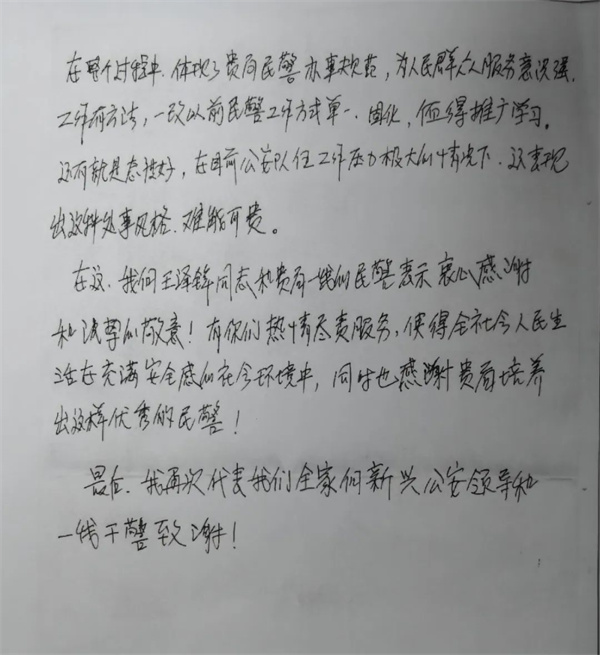 在整个过程中.体现了贵局民警办事规范，为人民群众服务意识强.
工作有方法，一改以前民警工作方式单一.固化，值得推广学习。
还有就是态度好，在目前公安队伍工作压力极大的情况下.还表现
出这种处事风格.难能可贵。
在这.我向王泽锋同志和贵局一线的民警表示衷心感谢
和诚挚的敬意！有你们热情尽责服务，使得全社会人民生
活在充满安全感的社会环境中，同时也感谢贵局培养
出这样优秀的民警！
最后.我再次代表我们全家向新兴公安领导和
一线干警致谢！